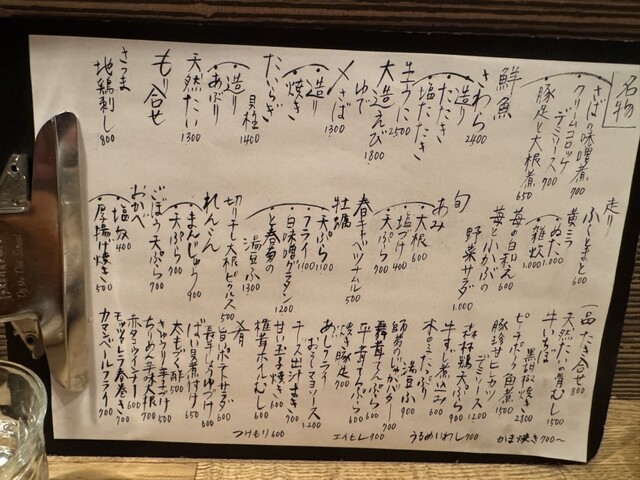 名物
さばの味噌煮 700
クリームコロッケ
デミソース 700
豚足と大根煮 650
鮮魚
さわら
造り 2400
たたき
塩たたき
生うに 2500
大造えび 1800
ゆで
〆さば 1300
焼き
造り 貝柱 1400
たいらぎ
造り
あぶり
天然たい 1300
もり合せ
さつま
地鶏刺し 800
走り
ふくとまと 600
黄ニラ
ぬた 1,000
雑炊 1,000
苺の白和え 600
苺と小かぶの
野菜サラダ 1,000
旬
あみ
大根 600
塩づけ 400
天ぷら 700
春キャベツナムル 500
牡蠣
天ぷら 1100
フライ 1100
白味噌グラタン 1200
と春菊の
湯豆ふ 1300
切り干し大根ピクルス 500
れんこん
まんじゅう 900
天ぷら 700
ごぼう天ぷら 700
おかべ
塩奴 400
厚揚げ焼き 500
一品
たき合せ 800
天然たいの骨むし
牛いちぼ 1500
黒胡椒焼き 2300
ピーチポーク角煮 1500
豚珍甘ヒレカツ
デミソース 1200
森林鶏天ぷら 900
牛すじ煮込み 600
木の子たっぷり
湯豆ふ 900
舞茸天ぷら 600
平茸天ぷら 600
焼き豚足 700
あじフライ
チーズ出汁まき 700
甘い玉子焼き 600
椎茸ホイルむし 600
肴
旨いポテトサラダ 600
長芋しょうゆづけ 600
ばい貝煮付け 650
太もずく酢 500
きゅうり辛子づけ 500
ちりめん辛味大根 700
赤タコウインナー 600
モッツァレラ春巻き 700
カマンベールフライ 700
つけもり 600
エイヒレ 700
うるめいわし 700
かま焼き 700〜